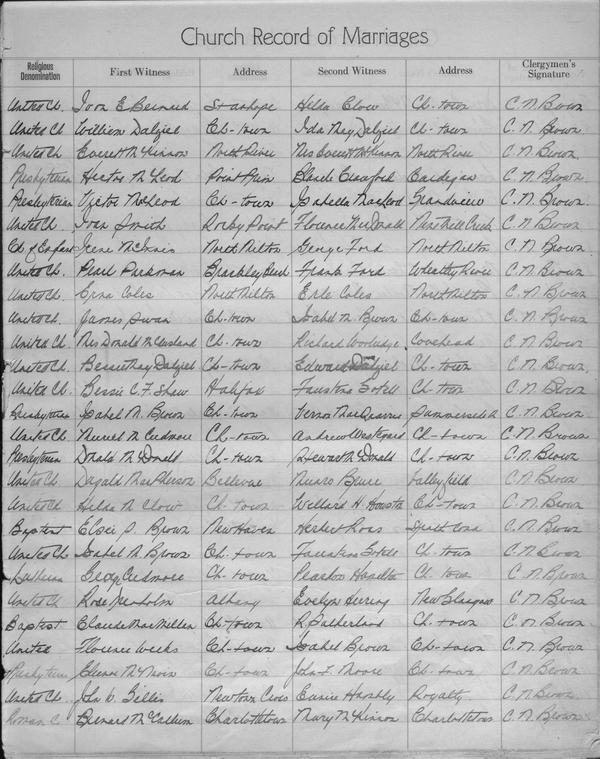 Church Record of Marriages
Religious Denomination First Witness Address Second Witness Address Clergymen's Signature
United Ch. Ivan E Bernard Stanhope Hilda Clow Ch-town C. N. Brown
United Ch William Dalziel Ch-town Ida May Dalziel Ch-town C. N. Brown
United Ch Everett McKinnon North River Mrs Everett McKinnon North River C. N. Brown.
Presbyterian Hector McLeod Point Prim Blanche Crawford Cardigan C. N. Brown
Presbyterian Victor McLeod Ch-town Isabella MacLeod Grandview C. N. Brown.
United Ch. Ivan Smith Rocky Point Florence MacDonald Nine Mile Creek C. N. Brown
Ch of England Irene McInnis North Milton George Ford North Milton C. N. Brown
United Ch. Pearl Parkman Brackley Beach Frank Ford Wheatley River C. N. Brown
United Ch Erna Coles North Milton Erle Coles North Milton C. N. Brown
United Ch. James Swan Ch-town Isabel M. Brown Ch-town C. N. Brown
United Ch Mrs Donald McCausland Ch-town Richard Covehead C. N. Brown
United Ch. Bessie May Dalziel Ch-town Edward Dalziel Ch-town C. N. Brown
United Ch. Bessie C. F. Shaw Halifax Ch town C. N. Brown
Presbyterian Isabel M. Brown Ch-town Vernon Summerside C. N. Brown
United Ch Ch-town Andrew Westegard Ch-town C. N. Brown
Presbyterian Donald McDonald Ch-town Stewart McDonald Ch-town C. N. Brown
United Ch. Dugald MacPherson Bellevue Munro Bruce Valleyfield C. N. Brown
United Ch Hilda M Clow Ch-town Willard H. Houston Ch-town C. N. Brown
Baptist Elsie S. Brown New Haven Herbert Ross C. N. Brown
United Ch Isabel M. Brown Ch-town Ch-town C. N. Brown
Lutheran Ch-town Ch town C. N. Brown
United Ch Rose Albany Evelyn New Glasgow C. N. Brown
Baptist Claude MacMillan Ch-town R. Sutherland Ch-town C. N. Brown
United Florence Weeks Ch-town Isabel Brown Ch-town C. N. Brown
Presbyterian Ch-town John F. Moore Ch-town C. N. Brown
United Ch. John W. Gillis Newtown Cross Eunice Royalty C. N. Brown.
Roman C. Bernard McCallum Charlottetown Mary McKinnon Charlottetown C. N. Brown